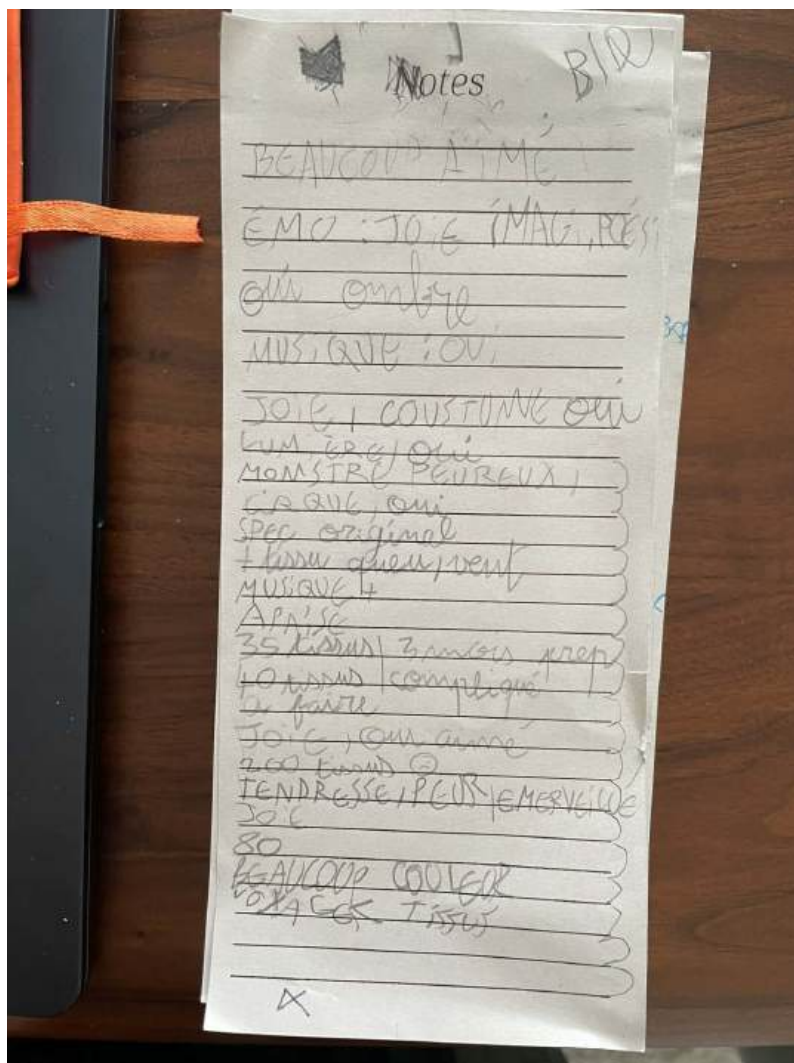 Notes
BEAUCOUP AIMÉ
ÉMO : JOIE IMAGI, POÉSI
oui ombre
MUSIQUE : OUI
JOIE, COUSTUNNE oui
LUMIÈRE, oui
MONSTRE PEUREUX,
CIRQUE, oui
SPEC original
1 tissu queu, vent
MUSIQUE +
APAISÉ
35 tissus 3 mois prep
40 tissus compliqué
a faire
JOIE, oui aimé
200 tissus
TENDRESSE, PEUR, EMERVEILLE
JOIE
80
BEAUCOUP COULEUR
TISSUS